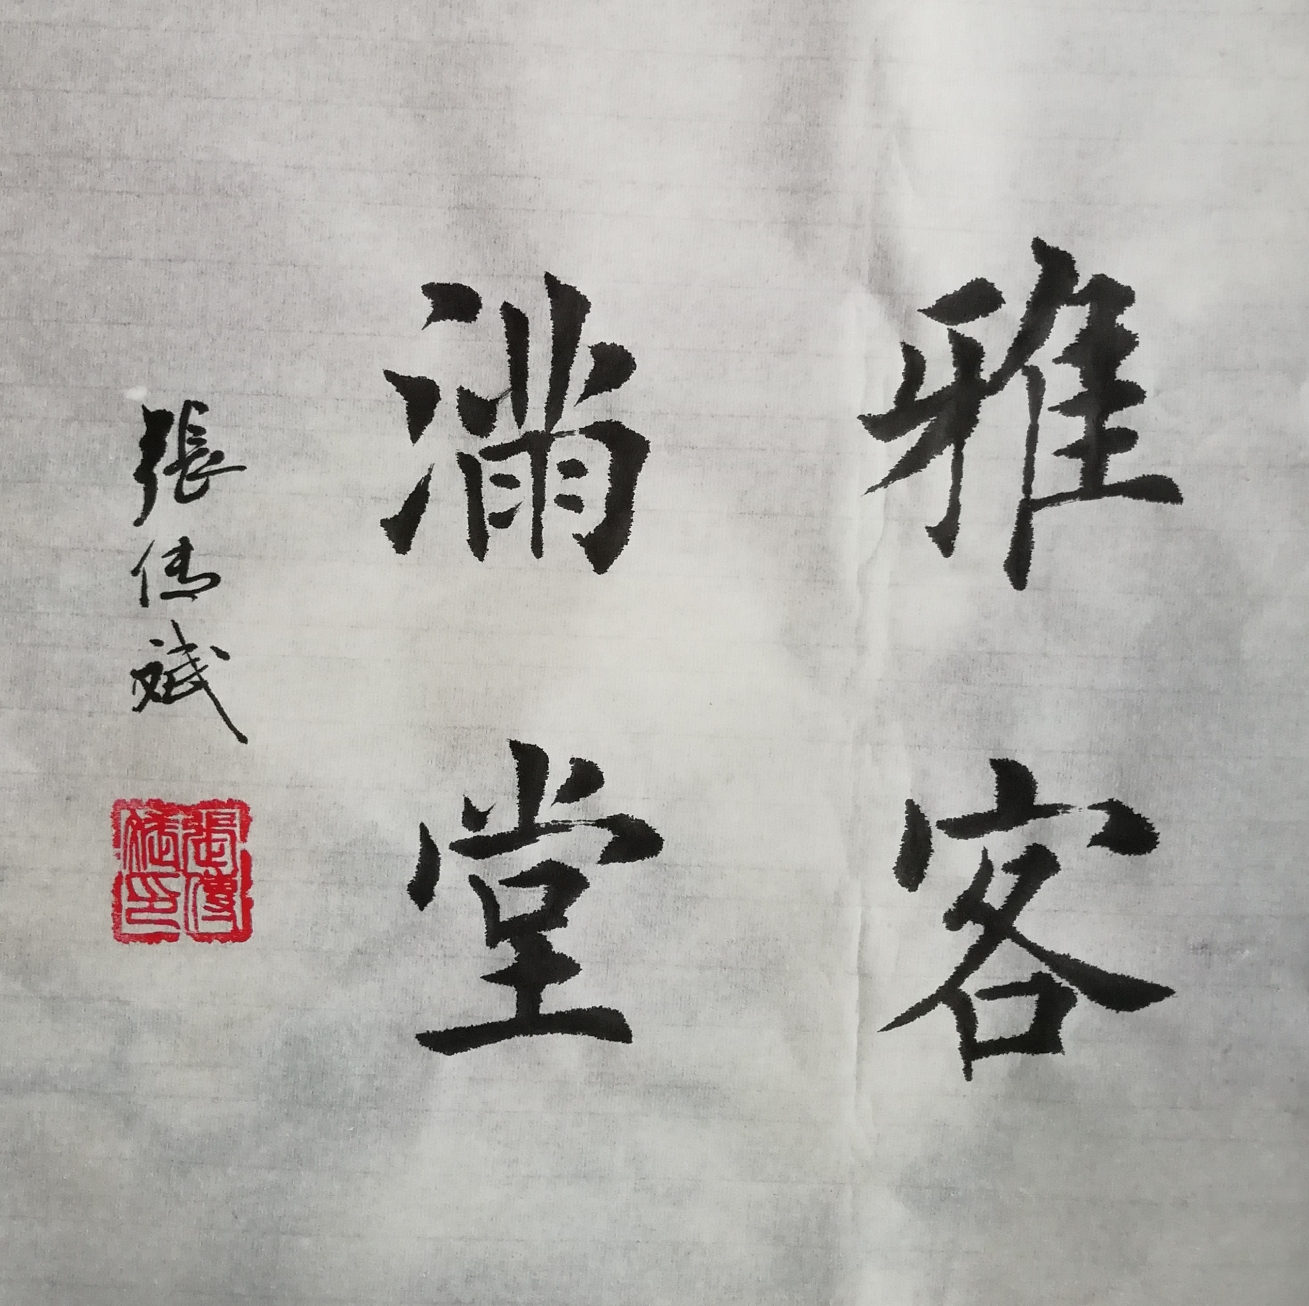 雅客
滿堂
張傳斌
張傳
斌印